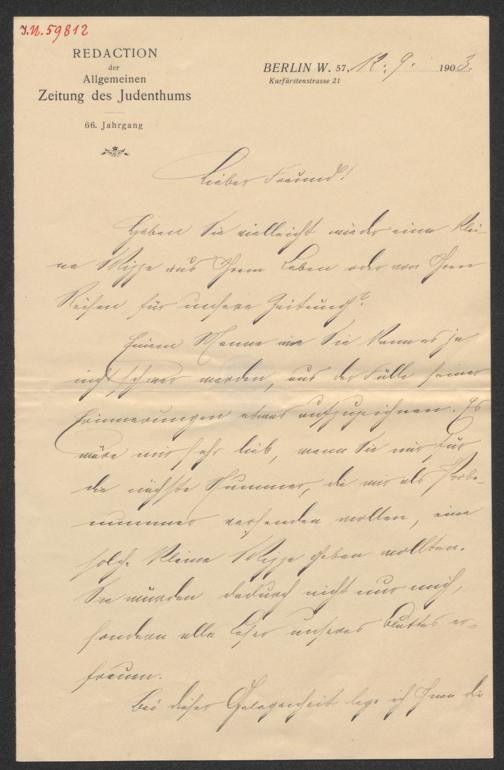 I.N. 59812
REDACTION
der
Allgemeinen
Zeitung des Judenthums
66. Jahrgang
BERLIN W. 57, 12. 9. 1903.
Kurfürstenstrasse 21
Lieber Freund!
Haben Sie vielleicht wieder eine klei-
ne Skizze aus Ihrem Leben oder von Ihren
Reisen für unsere Zeitung?
Einem Manne wie Sie kann es ja
nicht schwer werden, aus der Fülle seiner
Erinnerungen etwas aufzuzeichnen. Es
wäre mir sehr lieb, wenn Sie mir für
die nächste Nummer, die wir als Probe-
nummer versenden wollen, eine
solche kleine Skizze geben wollten.
Sie würden dadurch nicht nur mich,
sondern alle Leser unseres Blattes er-
freuen.
Bei dieser Gelegenheit lege ich Ihnen die